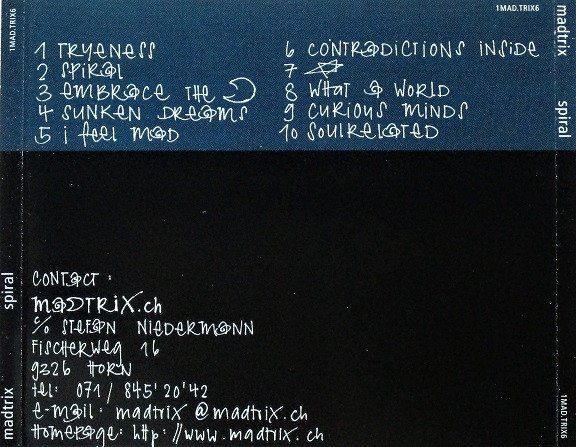 1MAD.TRIX6
1MAD.TRIX6
madtrix
spiral
1 TRYENESS
2 SPiRaL
3 EMBRaCE THE
4 SUNKEN DREaMS
5 i FEEL MaD
6 CONTRaDiCTiONS iNSiDE
7
8 WHat a WORLD
9 CURiOUS MiNDS
10 SOULRELaTED
CONTaCT :
MaDTRiX.ch
c/o STEFaN NiEDERMaNN
FiSCHERWEg 16
9326 HORN
tEL: 071 / 845'20'42
E-maiL: madtrix @ madtrix.ch
HomEpagE: http://www.madtrix.ch
madtrix
spiral
1MAD.TRIX6
1MAD.TRIX6